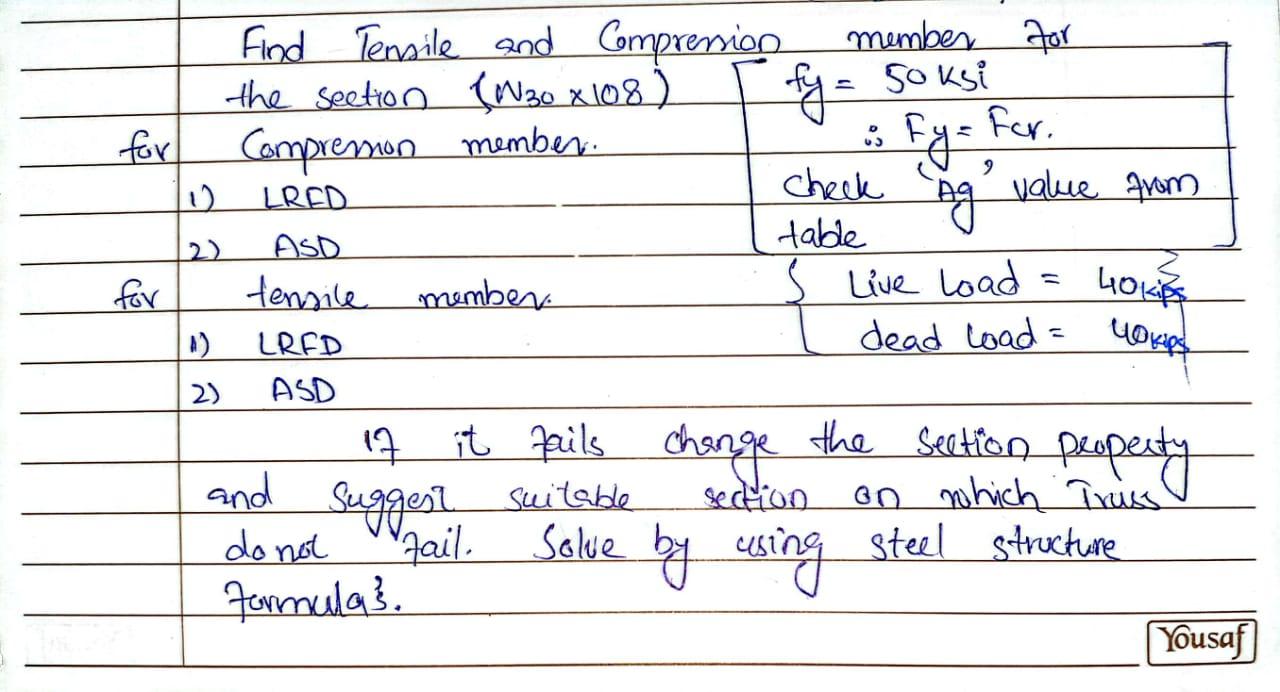 Find Tensile and Compression member for
the section (W30 x 108)
fy = 50 ksi
∴ Fy = Fcr.
for Compression member.
1) LRFD
check 'Ag' value from
table
2) ASD
for tensile member.
Live Load = 40kips
dead load = 40kips
1) LRFD
2) ASD
If it fails change the section property
and suggest suitable section on which Truss
do not fail. Solve by using steel structure
formula's.
Yousaf